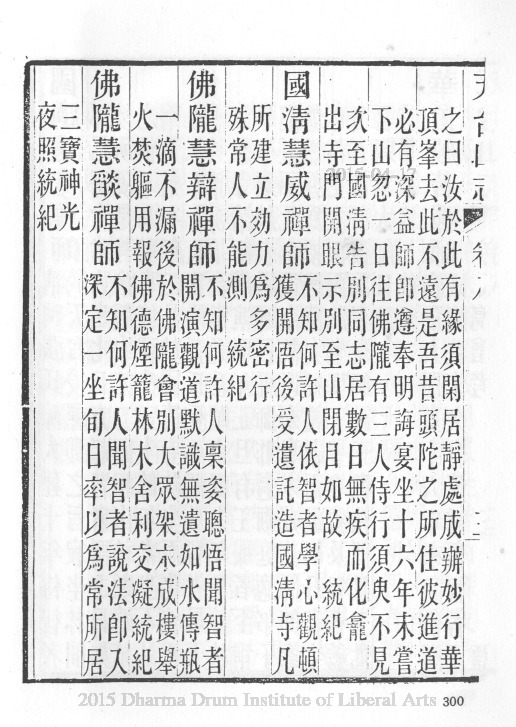 之曰汝於此有緣須閑居靜處成辦妙行華
頂峯去此不遠是吾昔頭陀之所住彼進道
必有深益師卽遵奉明誨宴坐十六年未嘗
下山忽一日往佛隴有三人侍行須臾不見
次至國淸告別同志居數日無疾而化龕
出寺門開眼示別至山閉目如故 統紀
國淸慧威禪師不知何許人依智者學心觀頓
獲開悟後受遺託造國淸寺凡
所建立効力爲多密行
殊常人不能測 統紀
佛隴慧辯禪師不知何許人稟姿聰悟聞智者
開演觀道默識無遺如水傳瓶
一滴不漏後於佛隴會別大眾架木放樓舉
火焚軀用報佛德煙籠林木舍利交凝統紀
佛隴慧㷔禪師不知何許人聞智者說法卽入
深定一坐旬日率以爲常所居
三寶神光
夜照統紀
2015 Dharma Drum Institute of Liberal Arts 300